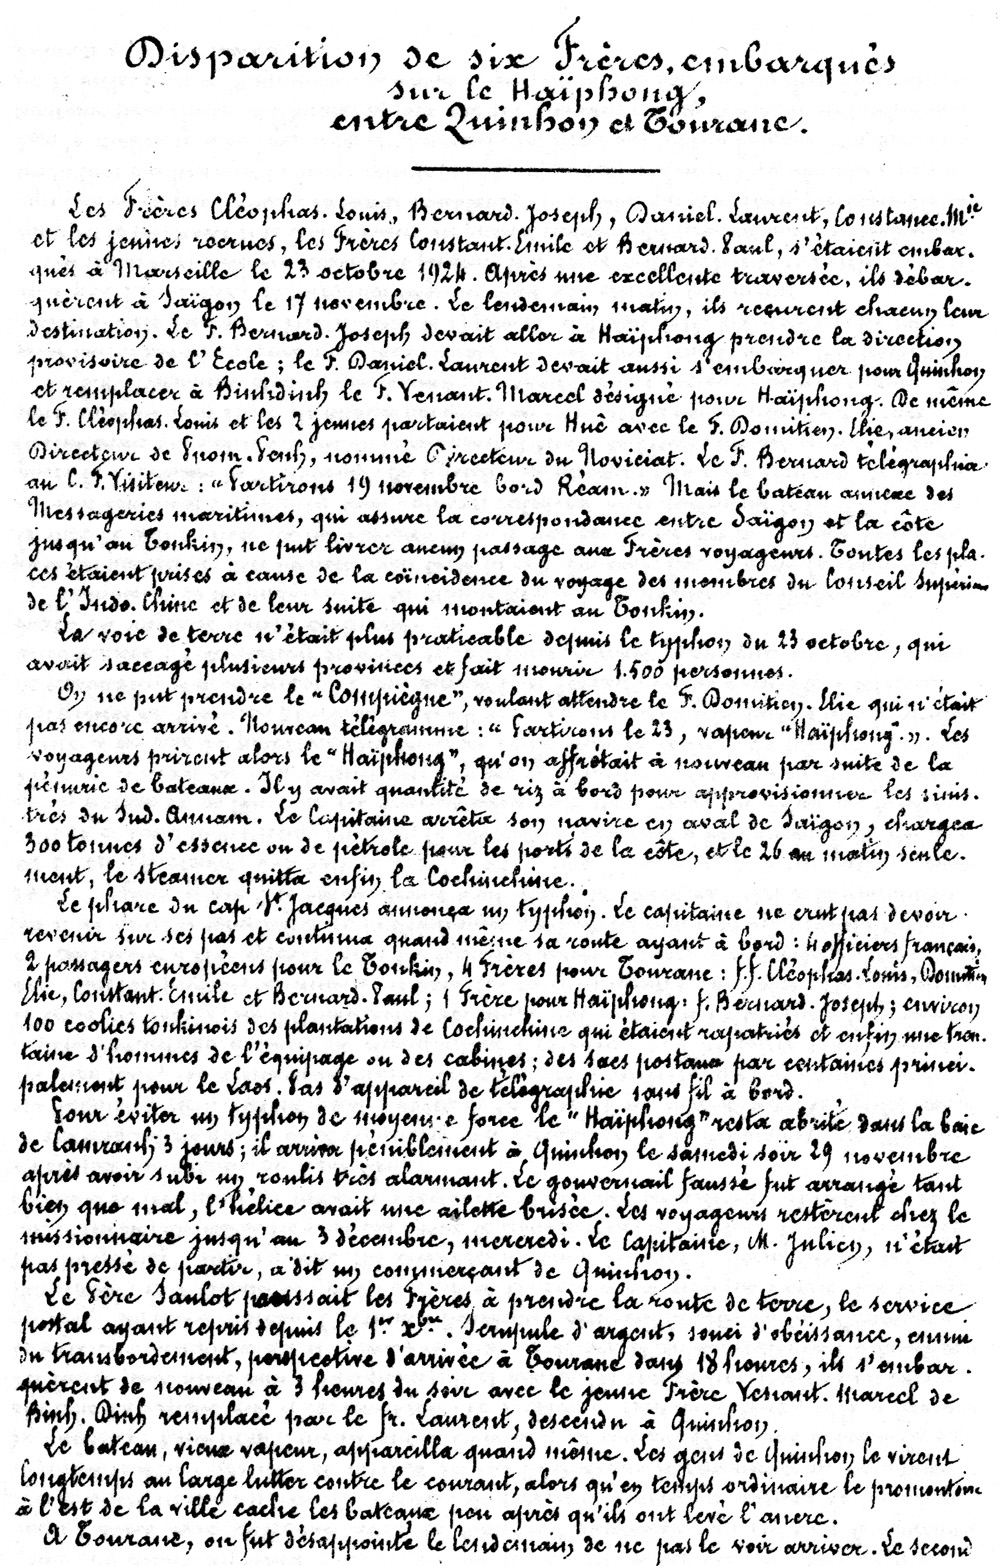 Disparition de six Frères, embarqués
sur le Haïphong,
entre Quinhon et Tourane.
Les Frères Cléophas. Louis, Bernard. Joseph, Daniel. Laurent, Constance. Mie
et les jeunes recrues, les Frères Constant. Emile et Bernard. Paul, s'étaient embar.
qués à Marseille le 23 octobre 1924. Après une excellente traversée, ils débar.
quèrent à Saïgon le 17 novembre. Le lendemain matin, ils reçurent chacun leur
destination. Le F. Bernard. Joseph devait aller à Haïphong prendre la direction
provisoire de l'Ecole ; le F. Daniel. Laurent devait aussi s'embarquer pour Quinhon
et remplacer à Binhdinh le F. Venant. Marcel désigné pour Haïphong. De même
le F. Cléophas. Louis et les 2 jeunes partaient pour Hué avec le F. Domitien. Elie, ancien
Directeur de Pnom. Penh, nommé Directeur du Noviciat. Le F. Bernard télégraphia
au C. F. Visiteur : « Partirons 19 novembre bord Réam. » Mais le bateau annexe des
Messageries maritimes, qui assure la correspondance entre Saïgon et la côte
jusqu'au Tonkin, ne put livrer aucun passage aux Frères voyageurs. Toutes les pla.
ces étaient prises à cause de la coïncidence du voyage des membres du Conseil Supérieur
de l'Indo. Chine et de leur suite qui montaient au Tonkin.
La voie de terre n'était plus praticable depuis le typhon du 23 octobre, qui
avait saccagé plusieurs provinces et fait mourir 1.500 personnes.
On ne put prendre le "Compiègne", voulant attendre le F. Domitien. Elie qui n'était
pas encore arrivé. Nouveau télégramme : « Partirons le 23, vapeur "Haïphong". ». Les
voyageurs prirent alors le "Haïphong", qu'on affrétait à nouveau par suite de la
pénurie de bateaux. Il y avait quantité de riz à bord pour approvisionner les sinis.
trés du Sud. Annam. Le Capitaine arrêta son navire en aval de Saïgon, chargea
300 tonnes d'essence ou de pétrole pour les ports de la côte, et le 26 au matin seule.
ment, le steamer quitta enfin la Cochinchine.
Le phare du cap St Jacques annonça un typhon. Le capitaine ne crut pas devoir
revenir sur ses pas et continua quand même sa route ayant à bord : 4 officiers français,
2 passagers européens pour le Tonkin, 4 Frères pour Tourane : f.f. Cléophas. Louis, Domitien
Elie, Constant. Emile et Bernard. Paul ; 1 Frère pour Haïphong : f. Bernard. Joseph ; environ
100 coolies tonkinois des plantations de Cochinchine qui étaient rapatriés et enfin une tren.
taine d'hommes de l'équipage ou des cabines ; des sacs postaux par centaines princi.
palement pour le Laos. Pas d'appareil de télégraphie sans fil à bord.
Pour éviter un typhon de moyenne force le "Haïphong" resta abrité dans la baie
de Camranh 3 jours ; il arriva péniblement à Quinhon le samedi soir 29 novembre
après avoir subi un roulis très alarmant. Le gouvernail faussé fut arrangé tant
bien que mal, l'hélice avait une ailette brisée. Les voyageurs restèrent chez le
missionnaire jusqu'au 3 décembre, mercredi. Le Capitaine, M. Julien, n'était
pas pressé de partir, a dit un commerçant de Quinhon.
Le Père Saulot poussait les Frères à prendre la route de terre, le service
postal ayant repris depuis le 1er Xbre. Scrupule d'argent, souci d'obéissance, ennui
du transbordement, perspective d'arrivée à Tourane dans 18 heures, ils s'embar.
quèrent de nouveau à 3 heures du soir avec le jeune Frère Venant. Marcel de
Binh. Dinh remplacé par le fr. Laurent, descendu à Quinhon.
Le bateau, vieux vapeur, appareilla quand même. Les gens de Quinhon le virent
longtemps au large lutter contre le courant, alors qu'en temps ordinaire le promontoire
à l'est de la ville cache les bateaux peu après qu'ils ont levé l'ancre.
A Tourane, on fut désappointé le lendemain de ne pas le voir arriver. Le second